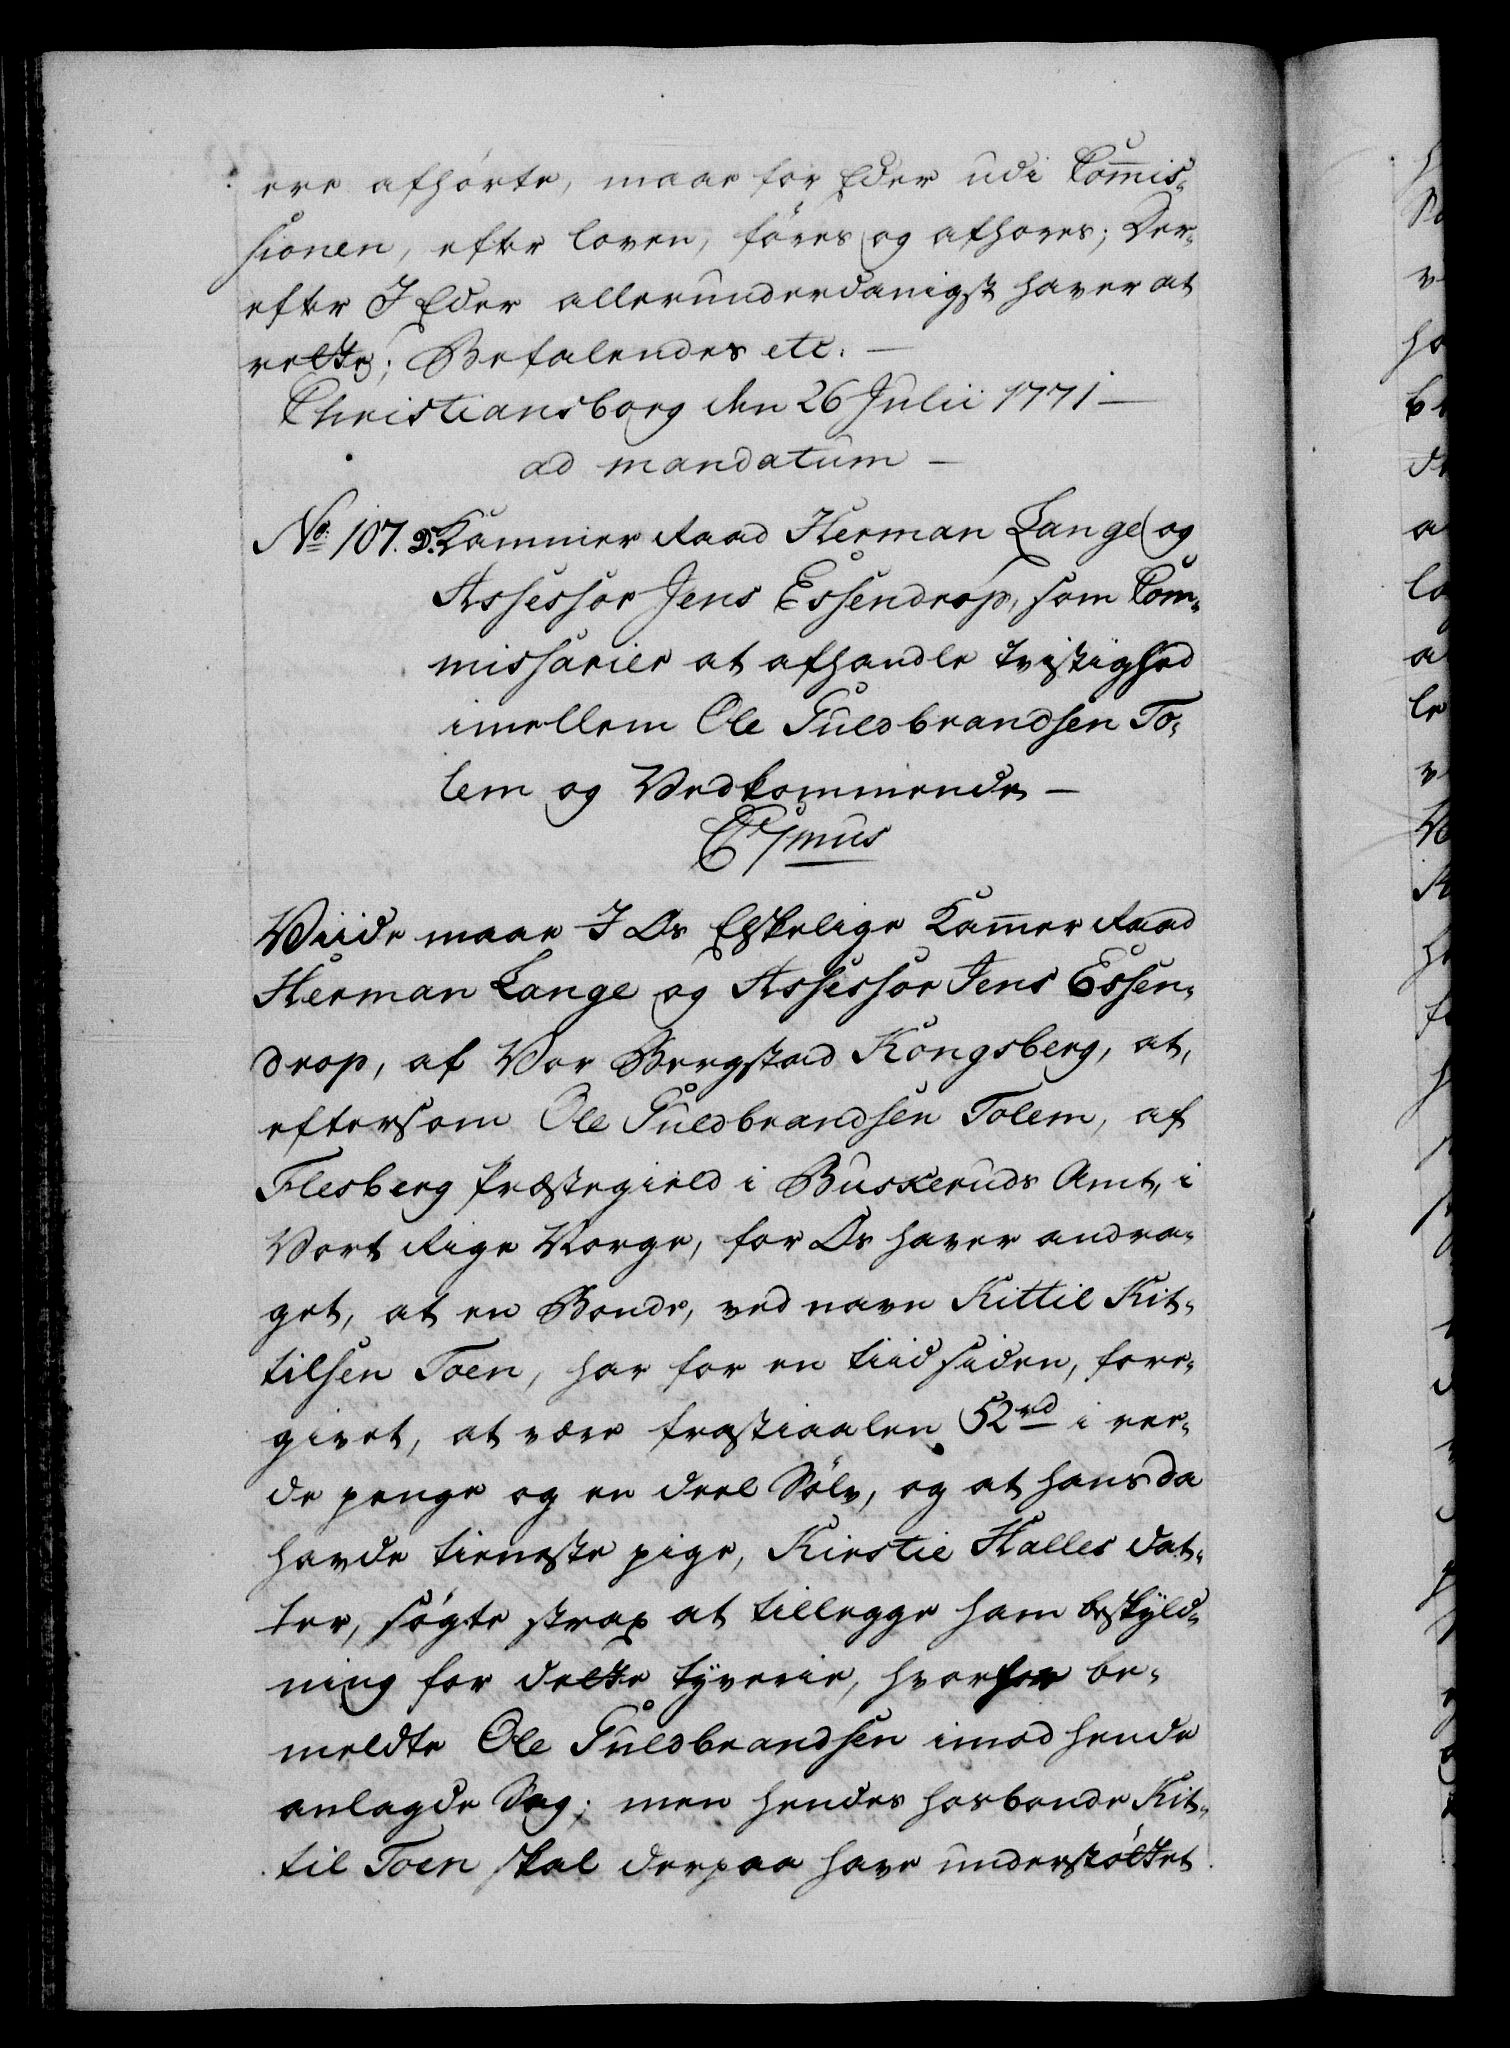 ere afhörte, maae for Eder udi Com̄is-
sionen, efter loven, föres og afhöres; Der-
efter I Eder allerunderdanigst haver at
rette; Befalendes etc. —
Christiansborg den 26 Julii 1771 —
ad mandatum —
No. 107. D. Kammer Raad Herman Lange og
Assessor Jens Essendrop, som Com-
missarier at afhandle tvistighed
imellem Ole Guldbrandsen To-
lem og Vedkommende —
C 7mus
Viide maae I Os Elskelige Kam̄er Raad
Herman Lange og Assessor Jens Essen-
drop, af Vor Bergstad Kongsberg, at,
eftersom Ole Guldbrandsen Tolem, af
Flesberg Præstegield i Buskeruds Amt, i
Vort Rige Norge, for Os haver andra-
get, at en Bonde, ved navn Kittil Kit-
tilsen Toen, har for en tiid siden, fore-
givet, at være frastiaalen 52 rd i ree-
de penge og en deel Sölv, og at hans da
havde tieneste pige, Kirstie Halles dat-
ter, søgte strax at tillegge ham beskyld-
ning for dette tyverie, hvorfor be-
meldte Ole Guldbrandsen imod hende
anlagde Sag; men hendes hosbonde Kit-
til Toen skal derpaa have understöttet